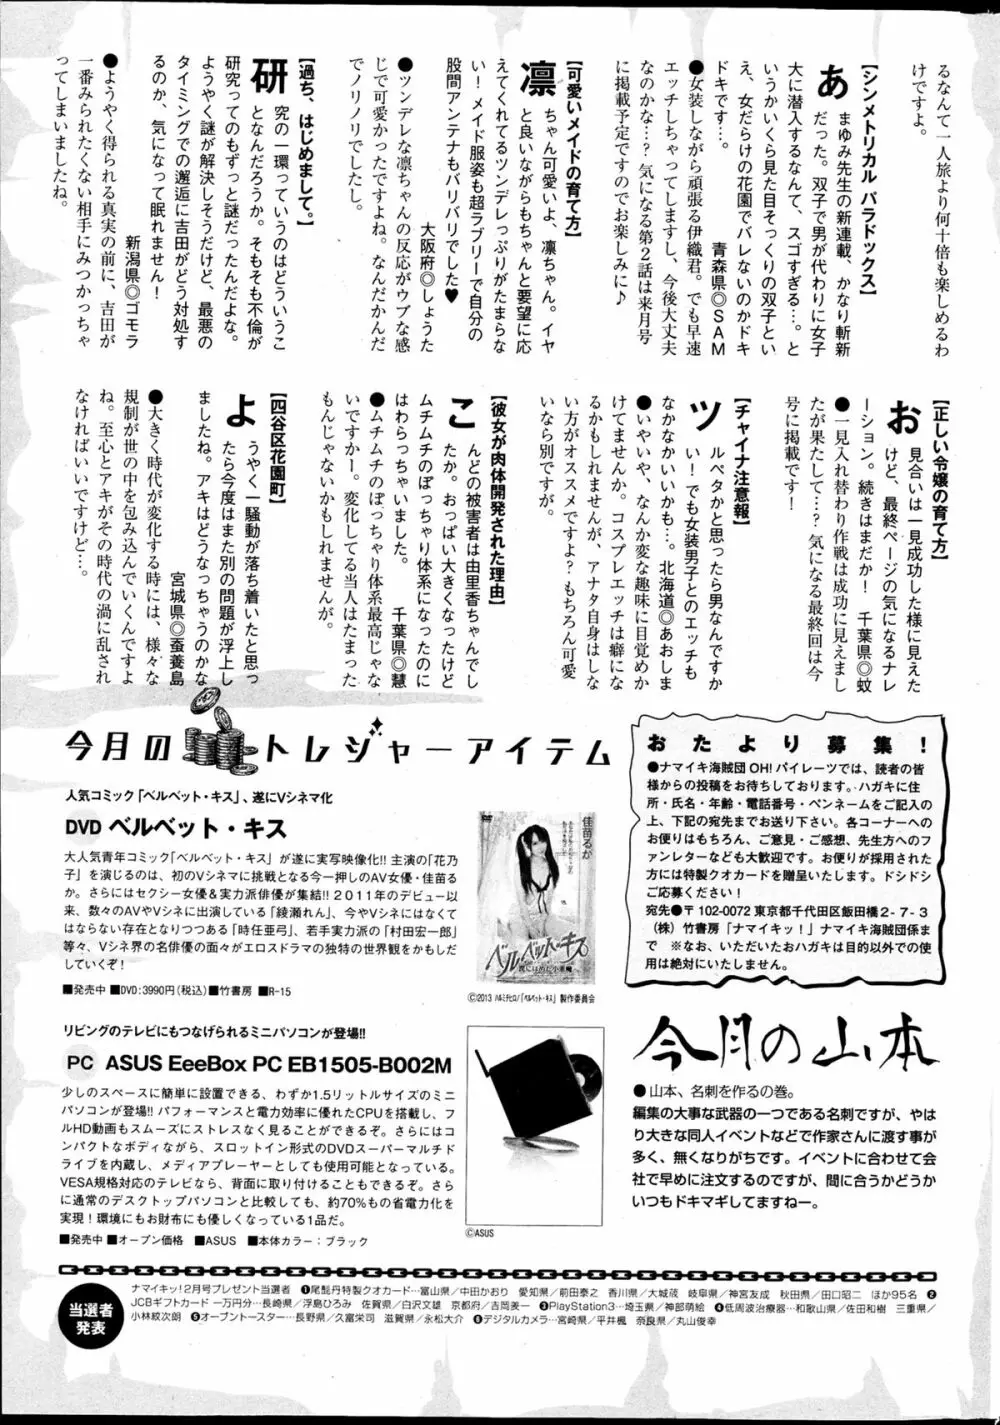 るなんて一人旅より何十倍も楽しめるわ
けですよ。
【シンメトリカル パラドックス】
あ まゆみ先生の新連載、かなり斬新
だった。双子で男が代わりに女子
大に潜入するなんて、スゴすぎる…。と
いうかいくら見た目そっくりの双子とい
え、女だらけの花園でバレないのかドキ
ドキです…。 青森県◎SAM
●女装しながら頑張る伊織君。でも早速
エッチしちゃってしますし、今後大丈夫
なのかな…?気になる第2話は来月号
に掲載予定ですのでお楽しみに♪
【可愛いメイドの育て方】
凛 ちゃん可愛いよ、凛ちゃん。イヤ
と良いながらもちゃんと要望に応
えてくれてるツンデレっぷりがたまらな
い!メイド服姿も超ラブリーで自分の
股間アンテナもバリバリでした♥
大阪府◎しょうた
●ツンデレな凛ちゃんの反応がウブな感
じで可愛かったですよね。なんだかんだ
でノリノリでしたし。
【過ち、はじめまして。】
研 究の一環っていうのはどういうこ
となんだろうか。そもそも不倫が
研究ってのもずっと謎だったんだよな。
ようやく謎が解決しそうだけど、最悪の
タイミングでの邂逅に吉田がどう対処す
るのか、気になって眠れません!
新潟県◎ゴモラ
●ようやく得られる真実の前に、吉田が
一番みられたくない相手にみつかっちゃ
ってしまいましたね。
【正しい令嬢の育て方】
お 見合いは一見成功した様に見えた
けど、最終ページの気になるナレ
ーション。続きはまだか! 千葉県◎蚊
●一見入れ替わり作戦は成功に見えまし
たが果たして…?気になる最終回は今
号に掲載です!
【チャイナ注意報】
ツ ルペタかと思ったら男なんですか
い!でも女装男子とのエッチも
なかなかいいかも…。北海道◎あおしま
●いやいや、なんか変な趣味に目覚めか
けてませんか。コスプレエッチは癖にな
るかもしれませんが、アナタ自身はしな
い方がオススメですよ?もちろん可愛
いなら別ですが。
【彼女が肉体開発された理由】
こ んどの被害者は由里香ちゃんでし
たか。おっぱい大きくなったけど
ムチムチのぽっちゃり体系になったのに
はわらっちゃいました。 千葉県◎慧
●ムチムチのぽっちゃり体系最高じゃな
いですかー。変化してる当人はたまった
もんじゃないかもしれませんが。
【四谷区花園町】
よ うやく一騒動が落ち着いたと思っ
たら今度はまた別の問題が浮上し
ましたね。アキはどうなっちゃうのかな
宮城県◎蚕養島
●大きく時代が変化する時には、様々な
規制が世の中を包み込んでいくんですよ
ね。至心とアキがその時代の渦に乱され
なければいいですけど…。
今月のトレジャーアイテム
人気コミック「ベルベット・キス」、遂にVシネマ化
DVD ベルベット・キス
大人気青年コミック「ベルベット・キス」が遂に実写映像化!! 主演の「花乃
子」を演じるのは、初のVシネマに挑戦となる今一押しのAV女優・佳苗る
か。さらにはセクシー女優&実力派俳優が集結!! 2011年のデビュー以
来、数々のAVやVシネに出演している「綾瀬れん」、今やVシネにはなくて
はならない存在となりつつある「時任亜弓」、若手実力派の「村田宏一郎」
等々、Vシネ界の名俳優の面々がエロスドラマの独特の世界観をかもしだ
していくぞ!
■発売中 ■DVD:3990円(税込) ■竹書房 ■R-15
佳苗るか
ベルベット・キス
罠にはめた小悪魔
©2013 ハルミチヒロ/「ベルベット・キス」製作委員会
リビングのテレビにもつなげられるミニパソコンが登場!!
PC ASUS EeeBox PC EB1505-B002M
少しのスペースに簡単に設置できる、わずか1.5リットルサイズのミニ
パソコンが登場!! パフォーマンスと電力効率に優れたCPUを搭載し、フ
ルHD動画もスムーズにストレスなく見ることができるぞ。さらにはコ
ンパクトなボディながら、スロットイン形式のDVDスーパーマルチド
ライブを内蔵し、メディアプレーヤーとしても使用可能となっている。
VESA規格対応のテレビなら、背面に取り付けることもできるぞ。さら
に通常のデスクトップパソコンと比較しても、約70%もの省電力化を
実現!環境にもお財布にも優しくなっている1品だ。
■発売中 ■オープン価格 ■ASUS ■本体カラー:ブラック
©ASUS
おたより募集!
●ナマイキ海賊団OH!パイレーツでは、読者の皆
様からの投稿をお待ちしております。ハガキに住
所・氏名・年齢・電話番号・ペンネームをご記入の
上、下記の宛先までお送り下さい。各コーナーへの
お便りはもちろん、ご意見・ご感想、先生方へのフ
ァンレターなども大歓迎です。お便りが採用された
方には特製クオカードを贈呈いたします。ドシドシ
ご応募ください!
宛先●〒102-0072 東京都千代田区飯田橋2-7-3
(株)竹書房「ナマイキッ!」ナマイキ海賊団係ま
で ※なお、いただいたおハガキは目的以外での使
用は絶対にいたしません。
今月の山本
●山本、名刺を作るの巻。
編集の大事な武器の一つである名刺ですが、やは
り大きな同人イベントなどで作家さんに渡す事が
多く、無くなりがちです。イベントに合わせて会
社で早めに注文するのですが、間に合うかどうか
いつもドキマギしてますねー。
当選者
発表
ナマイキッ!2月号プレゼント当選者 ❶尾髭丹特製クオカード…富山県/中田かおり 愛知県/前田泰之 香川県/大城茂 岐阜県/神宮友成 秋田県/田口昭二 ほか95名 ❷
JCBギフトカード 一万円分…長崎県/浮島ひろみ 佐賀県/白沢文雄 京都府/吉岡美一 ❸PlayStation3…埼玉県/神部萌絵 ❹低周波治療器…和歌山県/佐田和樹 三重県/
小林紋次朗 ❺オーブントースター…長野県/久富栄司 滋賀県/永松大介 ❻デジタルカメラ…宮崎県/平井楓 奈良県/丸山俊幸